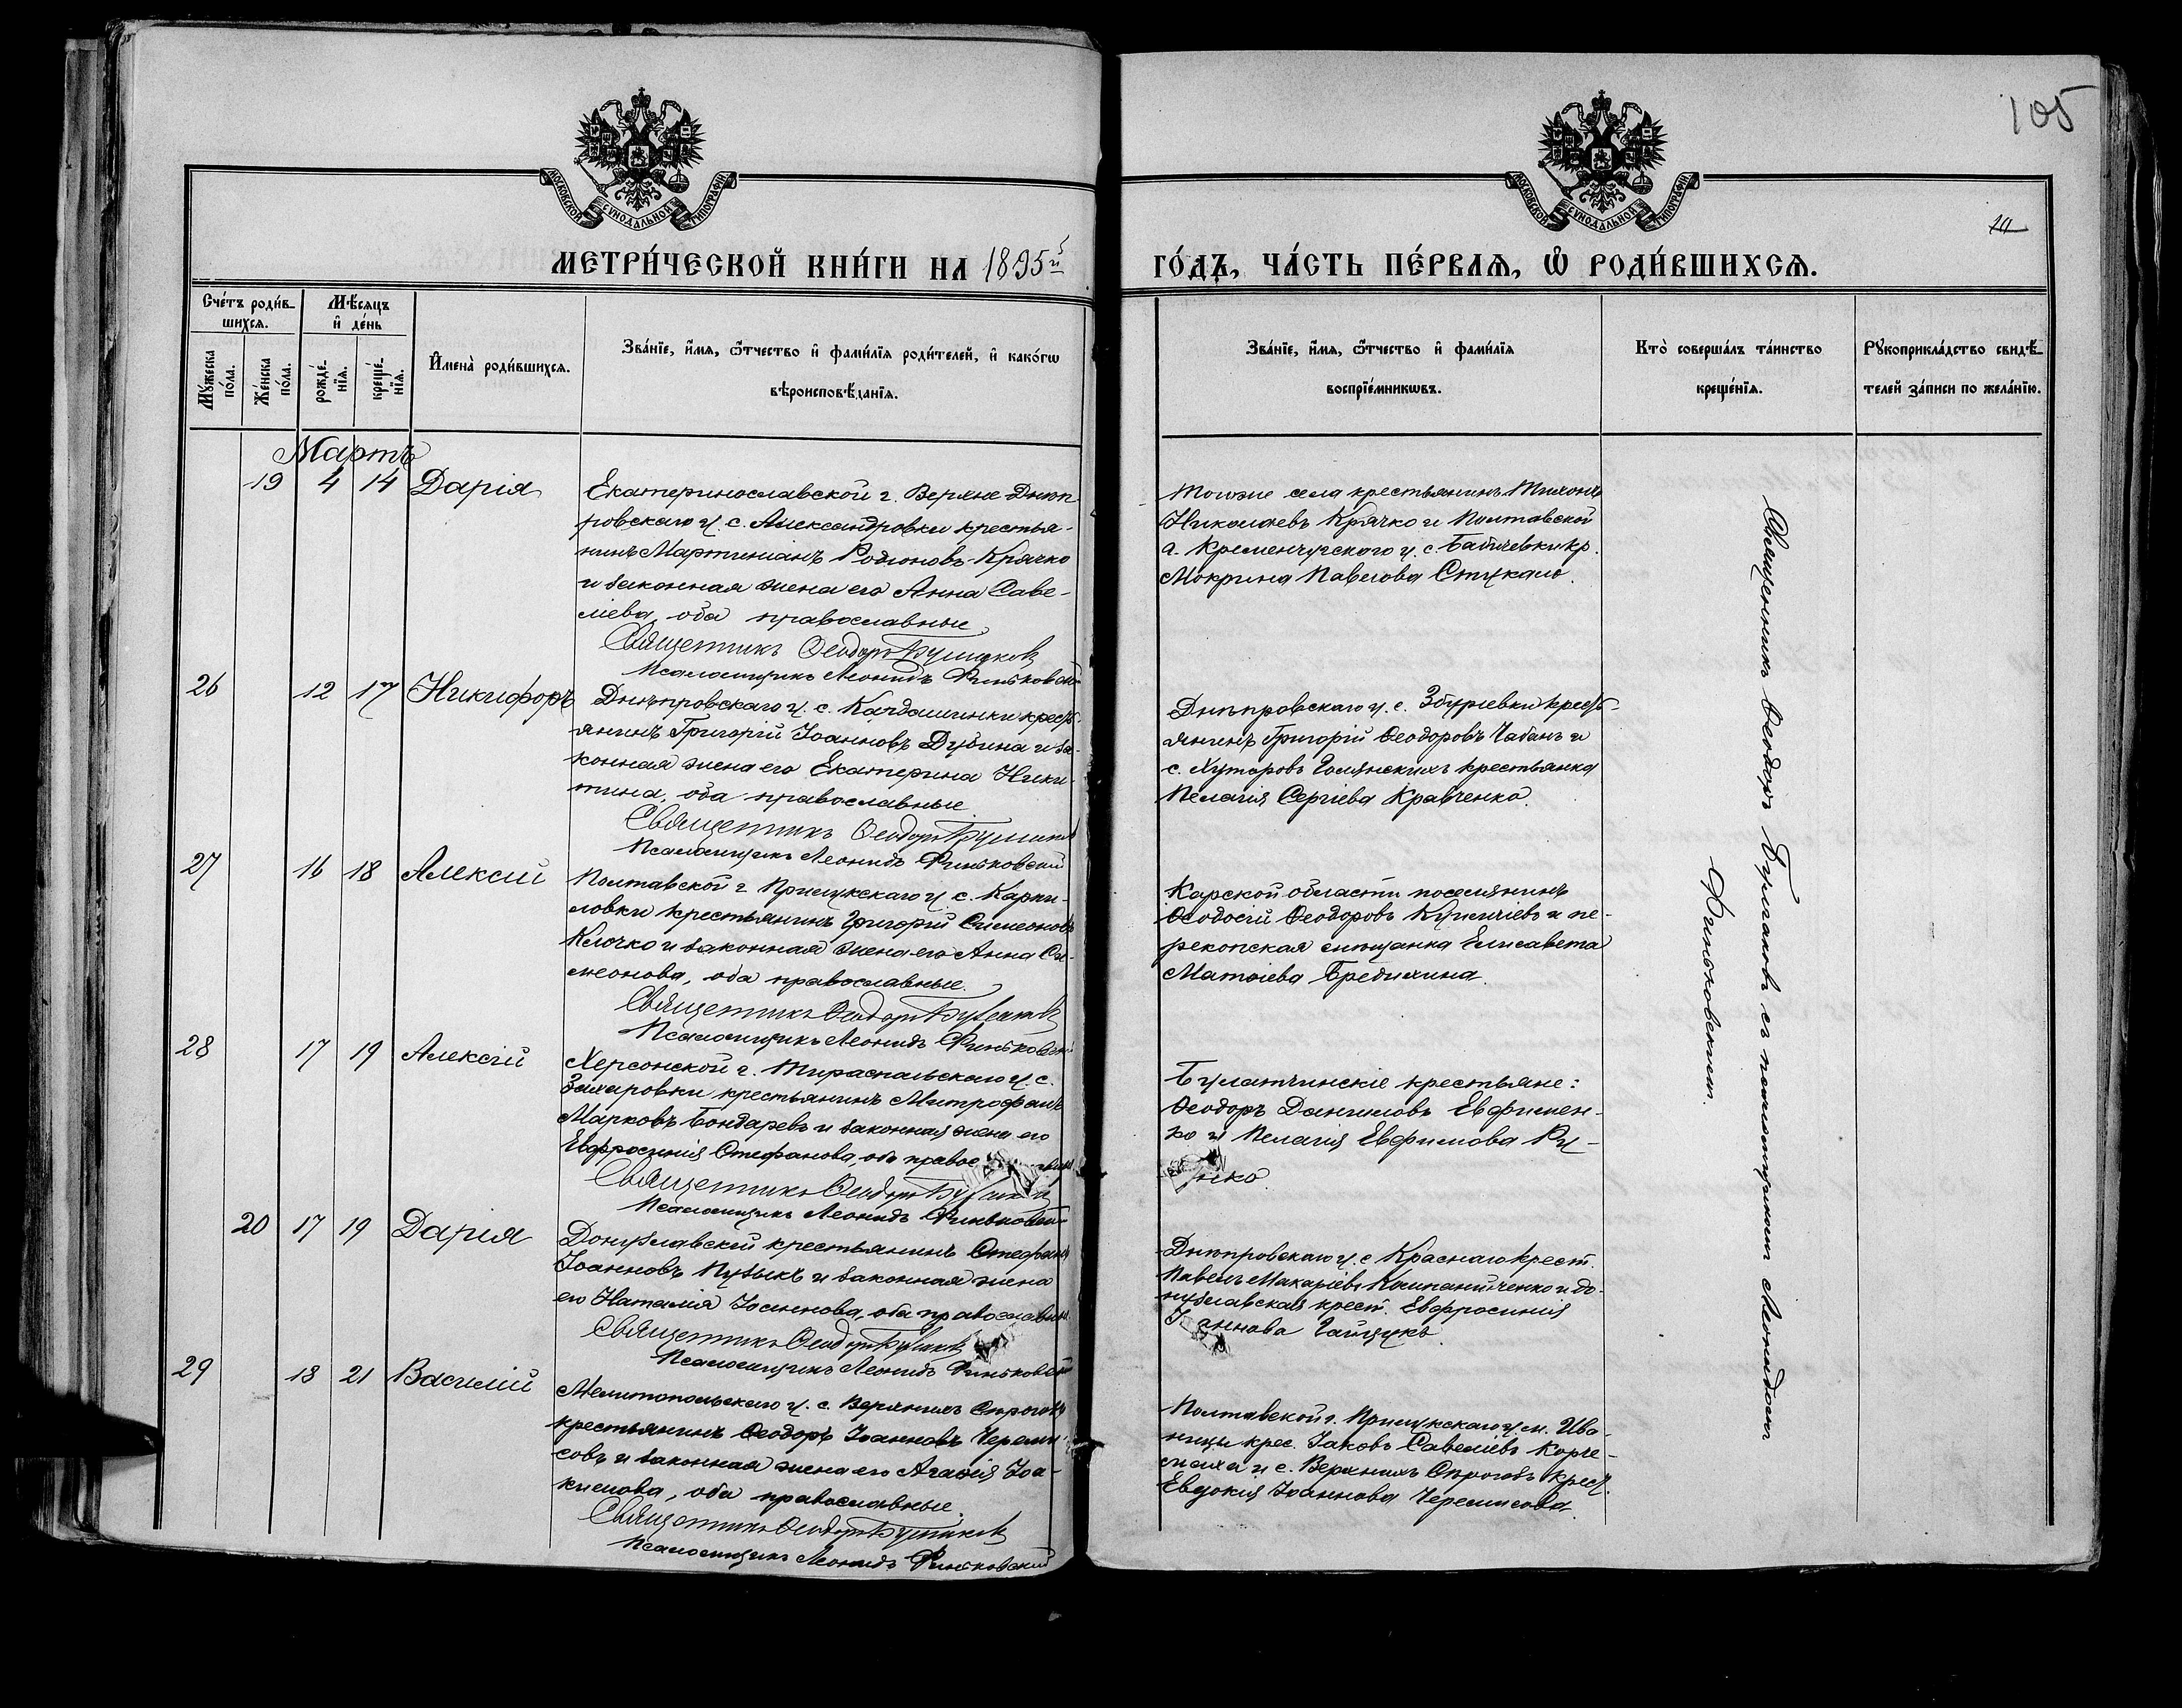 105
МОСКОВСКОЙ СѴНОДАЛЬНОЙ ТИПОГРАФІИ
МОСКОВСКОЙ СѴНОДАЛЬНОЙ ТИПОГРАФІИ
МЕТРИ́ЧЕСКОЙ КНИ́ГИ НА 1895й
ГО́ДЪ, ЧА́СТЬ ПЕ́РВАЯ, Ѡ РОДИ́ВШИХСЯ.
Сче́тъ роди́в-
шихся.
Мѣ́сяцъ
и де́нь
Мꙋ́жеска
по́ла.
Же́нска
по́ла.
рожде́-
нїя.
креще́-
нїя.
Имена̀ роди́вшихся.
Зва́нїе, и́мя, ѻ҆́тчество и фами́лїя роди́телей, и како́гѡ
вѣроисповѣ́данїя.
Зва́нїе, и́мя, ѻ҆́тчество и фами́лїя
воспрїе́мникѡвъ.
Кто̀ соверша́лъ та́инство
креще́нїя.
Рꙋкоприкла́дство свидѣ́-
телей за́писи по жела́нїю.
Мартъ
19 4 14 Дарія
Екатеринославской г. Верхне-Днѣп-
ровскаго у. с. Александровки крестья-
нинъ Мартиніанъ Родіоновъ Крячко
и законная жена его Анна Саве-
ліева, оба православные
Священникъ Ѳеодоръ Булгаковъ
Псаломщикъ Леонидъ
Тогоже села крестьянинъ Тихонъ
Николаевъ Крячко и Полтавской
г. Кременчугскаго у. с. кр.
Мокрина Павлова Стукало.
26 12 17 Никифоръ
Днѣпровскаго у. с. Кардашинки кресть-
янинъ Григорій Іоанновъ Дубина и за-
конная жена его Екатерина Ники-
тина, оба православные
Священникъ Ѳеодоръ Булгаковъ
Псаломщикъ Леонидъ
Днѣпровскаго у. с. Збурьевки кресть-
янинъ Григорій Ѳеодоровъ Чабанъ и
с. Хуторовъ крестьянка
Пелагія Сергіева Кравченко.
27 16 18 Алексій
Полтавской г. Прилукскаго у. с. Карпи-
ловки крестьянинъ Григорій Симеоновъ
Клочко и законная жена его Анна Си-
меонова, оба православные.
Священникъ Ѳеодоръ Булгаковъ
Псаломщикъ Леонидъ
Карской области поселянинъ
Ѳеодосій Ѳеодоровъ и пе-
рекопская мѣщанка Елисавета
Матѳіева Бредихина.
28 17 19 Алексій
Херсонской г. Тираспольскаго у. с.
Захаровки крестьянинъ Митрофанъ
Марковъ Бондаревъ и законная жена его
Евфросинія Стефанова, оба правос
Священникъ Ѳеодоръ Булгаковъ
Псаломщикъ Леонидъ
Булатчинскіе крестьяне:
Ѳеодоръ Даниловъ Евфимен-
ко и Пелагія Евфимова Ру-
нко.
20 17 19 Дарія
Донузлавскій крестьянинъ Стефанъ
Іоанновъ Пузыкъ и законная жена
его Наталія Іоаннова, оба православные
Священникъ Ѳеодоръ Булгаковъ
Псаломщикъ Леонидъ
Днѣпровскаго у. с. Краснаго крест.
Павелъ Макаріевъ Компанійченко и до-
нузлавская крест. Евфросинія
Іоаннова Гайдукъ.
29 18 21 Василій
Мелитопольскаго у. с. Верхнихъ Сѣрогозъ
крестьянинъ Ѳеодоръ Іоанновъ Череми-
совъ и законная жена его Агаѳія Іоа-
кимова, оба православные
Священникъ Ѳеодоръ Булгаковъ
Псаломщикъ Леонидъ
Полтавской г. Прилукскаго у. м. Ива-
ницы крес. Іаковъ Савеліевъ Корче-
маха и с. Верхнихъ Сѣрогозъ крест.
Евдокія Іоаннова Черемисова.
Священникъ Ѳеодоръ Булгаковъ съ псаломщикомъ Леонидомъ